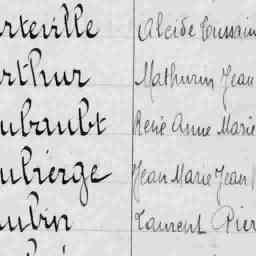 rteville Alcide Toussain
rthur Mathurin Jean
ubault René Anne Marie
ubierge Jean Marie Jean
ubin Laurent Pier